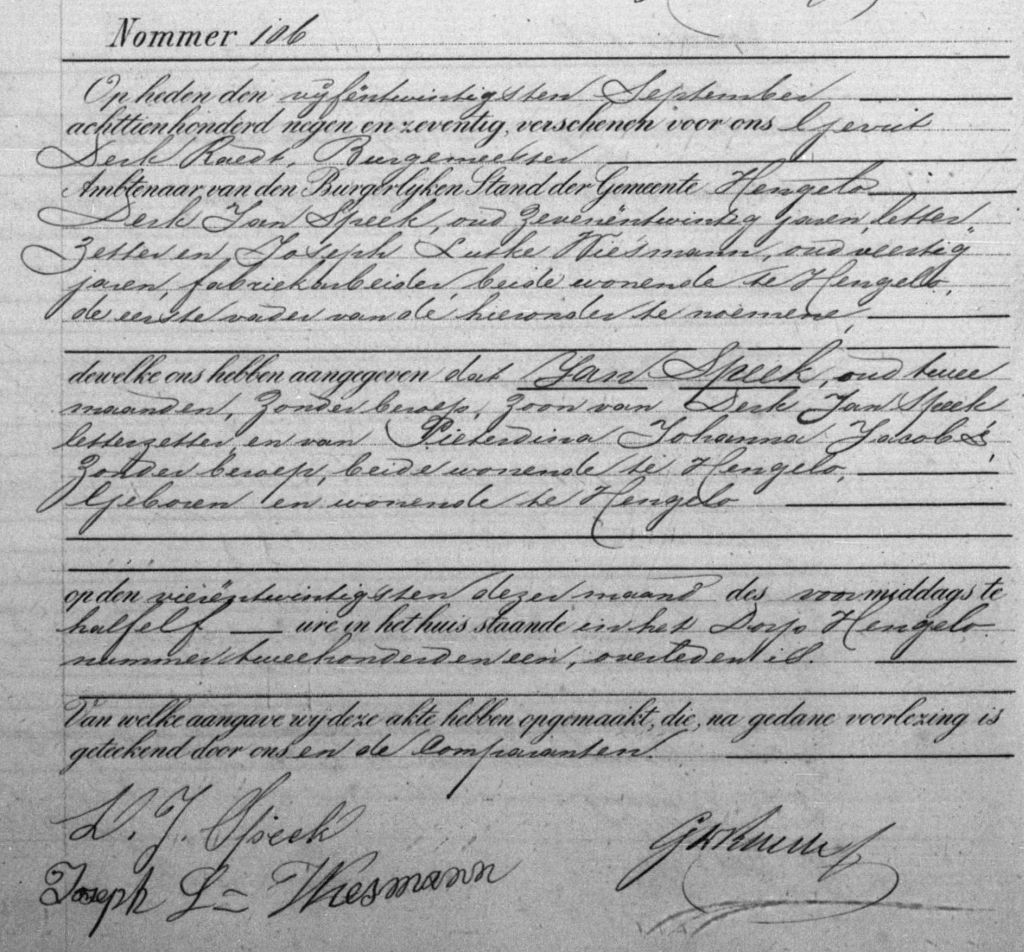 Nommer 106
Op heden den vijfëntwintigsten September
achttienhonderd negen en zeventig, verschenen voor ons Gerrit
Derk Raedt, Burgemeester
Ambtenaar van den Burgerlyken Stand der Gemeente Hengelo
Derk Jan Speek, oud zevenëntwintig jaren, letter
zetter en, Joseph Lutke Wiesmann, oud veertig
jaren, fabriekarbeider, beide wonende te Hengelo,
de eerste vader van de hieronder te noemene,
dewelke ons hebben aangegeven dat Jan Speek, oud twee
maanden, zonder beroep, zoon van Derk Jan Speek
letterzetter, en van Pieterdina Johanna Jacobs,
zonder beroep, beide wonende te Hengelo,
Geboren en wonende te Hengelo
op den vierëntwintigsten dezer maand des voormiddags te
half elf ure in het huis staande in het Dorp Hengelo
nummer tweehonderdeneen, overleden is.
Van welke aangave wij deze akte hebben opgemaakt, die, na gedane voorlezing is
geteekend door ons en de Comparanten.
D. J. Speek
Joseph L= Wiesmann